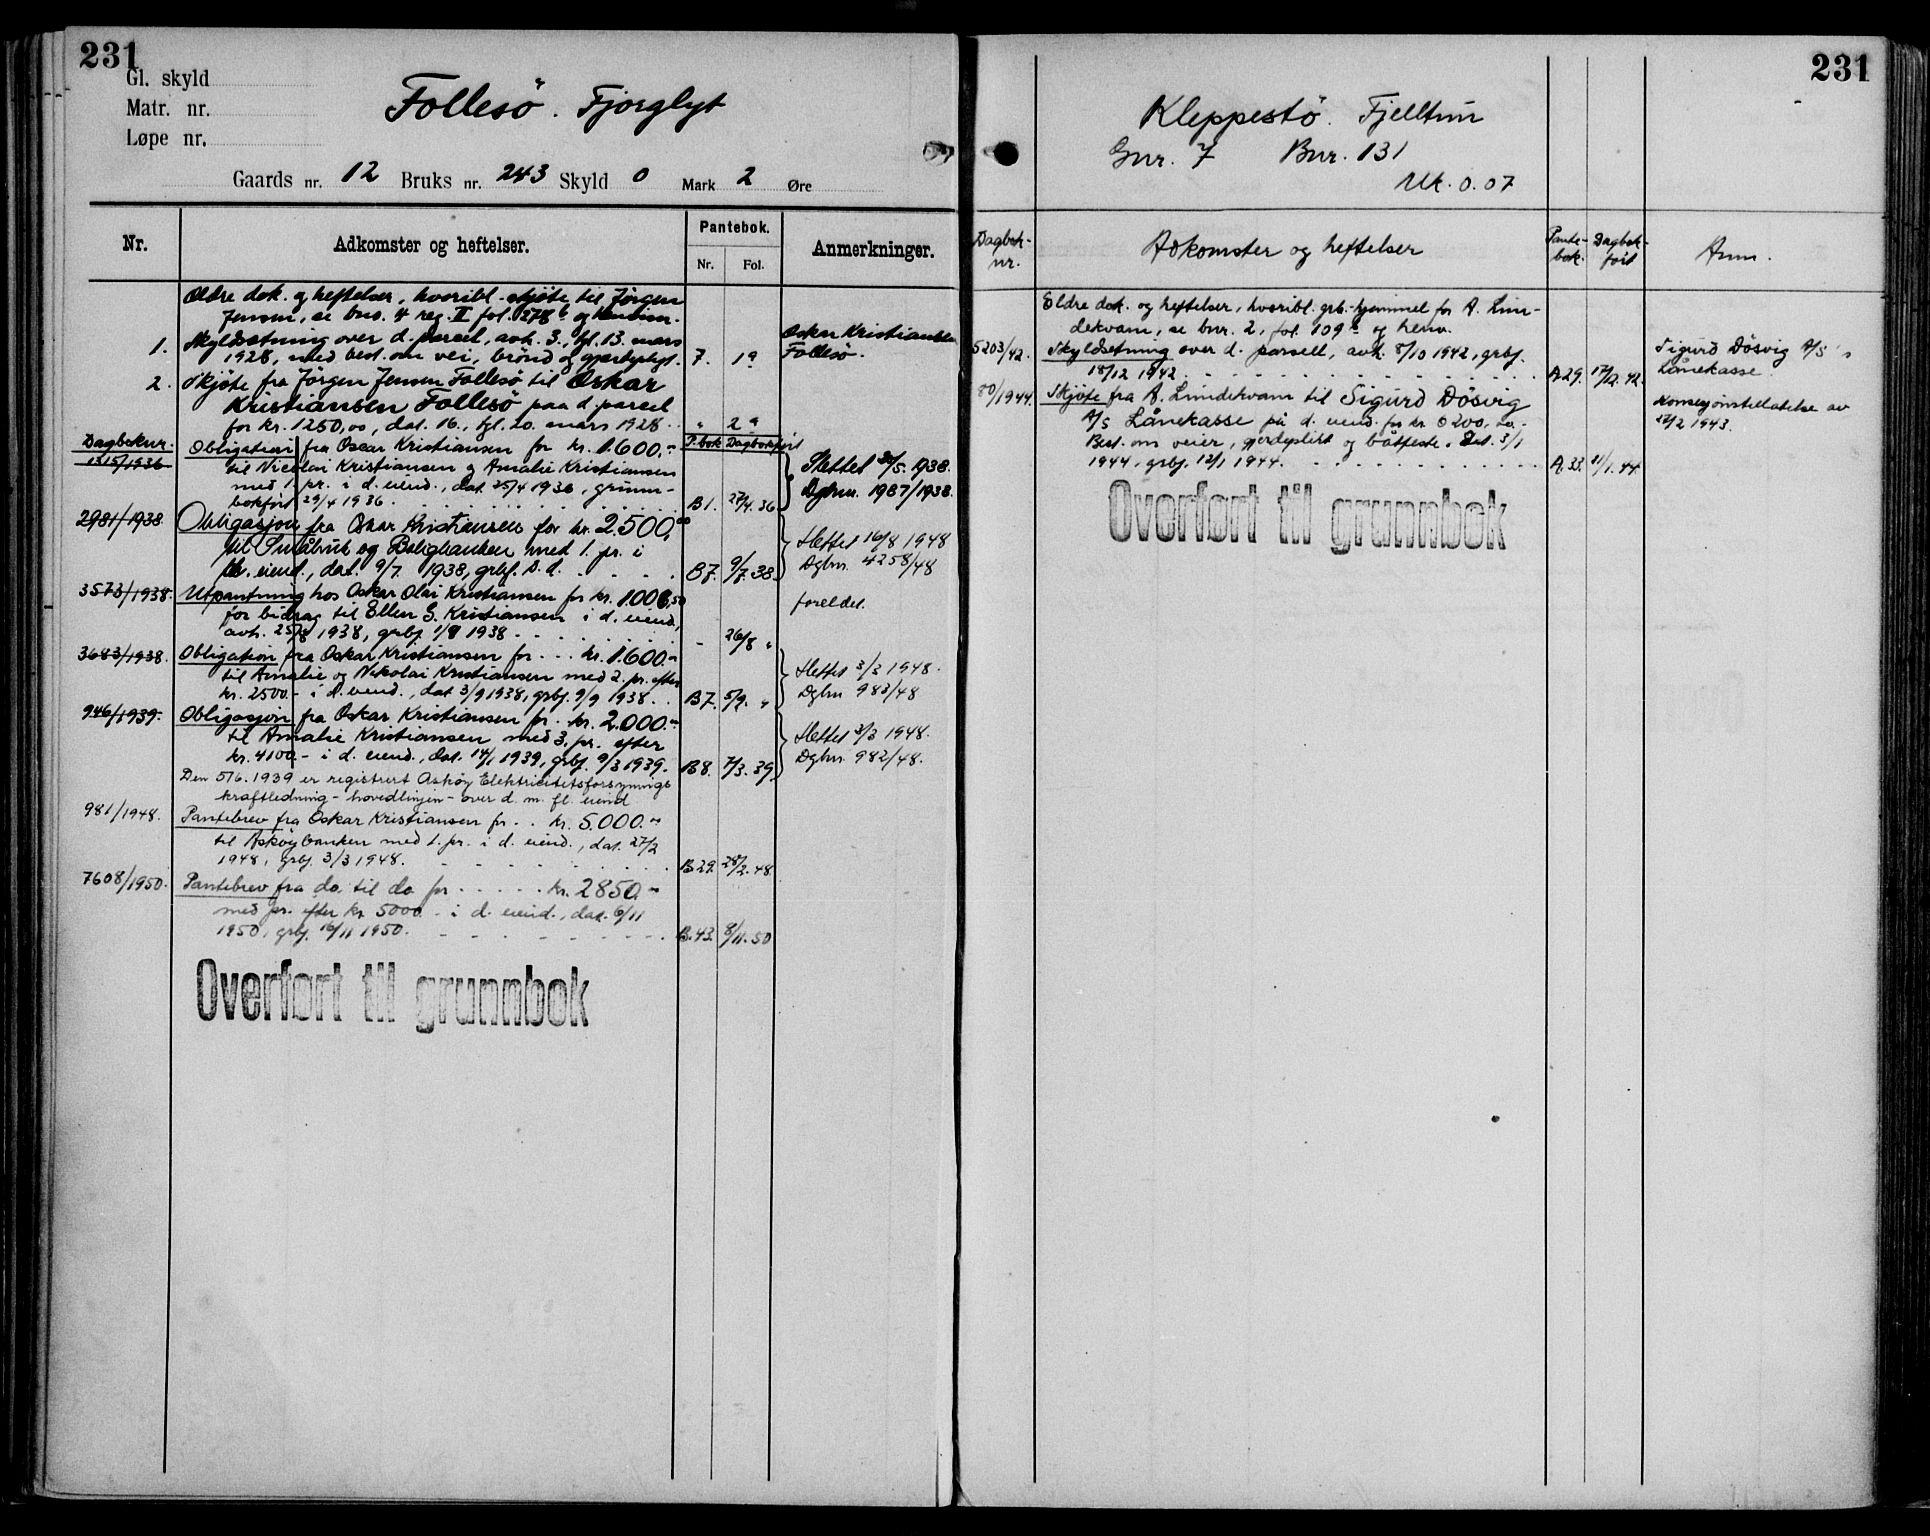 231
Gl. skyld
Matr. nr.
Løpe nr.
Follesö. Fjorglyt
Gaards nr. 12 Bruks nr. 243 Skyld 0 Mark 2 Øre
Nr.
Adkomster og heftelser.
Pantebok.
Nr. Fol.
Anmerkninger.
Ældre dok. og heftelser, hvoribl. skjöte til Jörgen
Jensen, se bno. 4 reg. II fol. 278 b og henviser.
1. Skyldsetning over d. parcel, avh. 3., tgl. 13. mars
1928, med best. om vei, brönd og gjerdeplygt. 7. 1 a
Oskar Kristiansen
Follesö.
2. Skjöte fra Jörgen Jensen Follesö til Oskar
Kristiansen Follesö paa d. parcel
for kr. 1250,00, dat. 16., tgl. 20. mars 1928. " 2 a
Dagboknr. P.bok Dagbokfört
1315/1936 Obligation fra Oscar Kristiansen for kr. 1.600.-
til Nicolai Kristiansen og Amalie Kristiansen
med 1. pr. i d. eiend., dat. 25/4 1936, grunn-
bokfört 29/4 1936. B1. 27/4.36
Slettet 30/5.1938.
Dgbnr. 1987/1938.
2981/1938. Obligasjon fra Oskar Kristiansen for kr. 2.500,00
til Småbruk og Boligbanken med 1. pr. i
d. eiend., dat. 9/7 1938, grbf. s.d. B7. 9/7.38.
Slettet 16/8 1948
Dgbnr. 4258/48
3573/1938. Utpantning hos Oskar Olai Kristiansen for kr. 1.006,50
for bidrag til Ellen G. Kristiansen i d. eiend,
avh. 25/8 1938, grbf. 1/9 1938. - 26/8 "
foreldet.
3683/1938. Obligation fra Oskar Kristiansen for kr. 1.600.-
til Amalie og Nikolai Kristiansen med 2. pr. efter
kr. 2500.- i d. eiend., dat. 3/9 1938, grbf. 9/9 1938. B7. 5/9. "
Slettet 3/3 1948.
Dgbnr 983/48
946/1939. Obligasjon fra Oskar Kristiansen for kr. 2.000.-
til Amalie Kristiansen med 3. pr. efter
kr. 4100.- i d. eiend., dat. 14/1 1939, grbf. 9/3 1939. B8. 7/3.39.
Slettet 3/3 1948.
Dgbnr. 982/48.
Den 5/6.1939 er registrert Askøy Elektricitetsforsynings
kraftledning - hovedlinjen - over d. m. fl. eiend
981/1948. Pantebrev fra Oskar Kristiansen for kr. 5.000.-
til Askøybanken med 1. pr. i d. eiend., dat. 27/2
1948, grbf. 3/3 1948. B29. 28/2.48
7608/1950. Pantebrev fra do til do for kr. 2850.-
med pr. efter kr 5000.- i d. eiend., dat. 6/11
1950, grbf. 16/11 1950. B.43. 8/11.50
Overført til grunnbok
231
Kleppestö. Fjelltun
Gnr. 7 Bnr. 131
Mk. 0.07
Dagbok-
nr.
Adkomster og heftelser
Pante-
bok.
Dagbok-
ført
Anm.
Eldre dok. og heftelser, hvoribl. grb-hjemmel for A. Lin-
dekvam, se bnr. 2, fol. 109 b og henv.
5203/42. Skyldsetning over d. parsell, avh. 8/10 1942, grbf.
18/12 1942. A 29. 17/12.42.
Sigurd Dösvig A/S's
Lånekasse.
80/1944. Skjöte fra A. Lundekvam til Sigurd Dösvig
A/S Lånekasse på d. eiend. for kr 6200,
Best. om veier, gjerdeplikt og båtfeste. Dat. 3/1
1944, grbf. 12/1 1944. A 33. 11/1.44.
Konsesjonstillatelse av
1943.
Overført til grunnbok